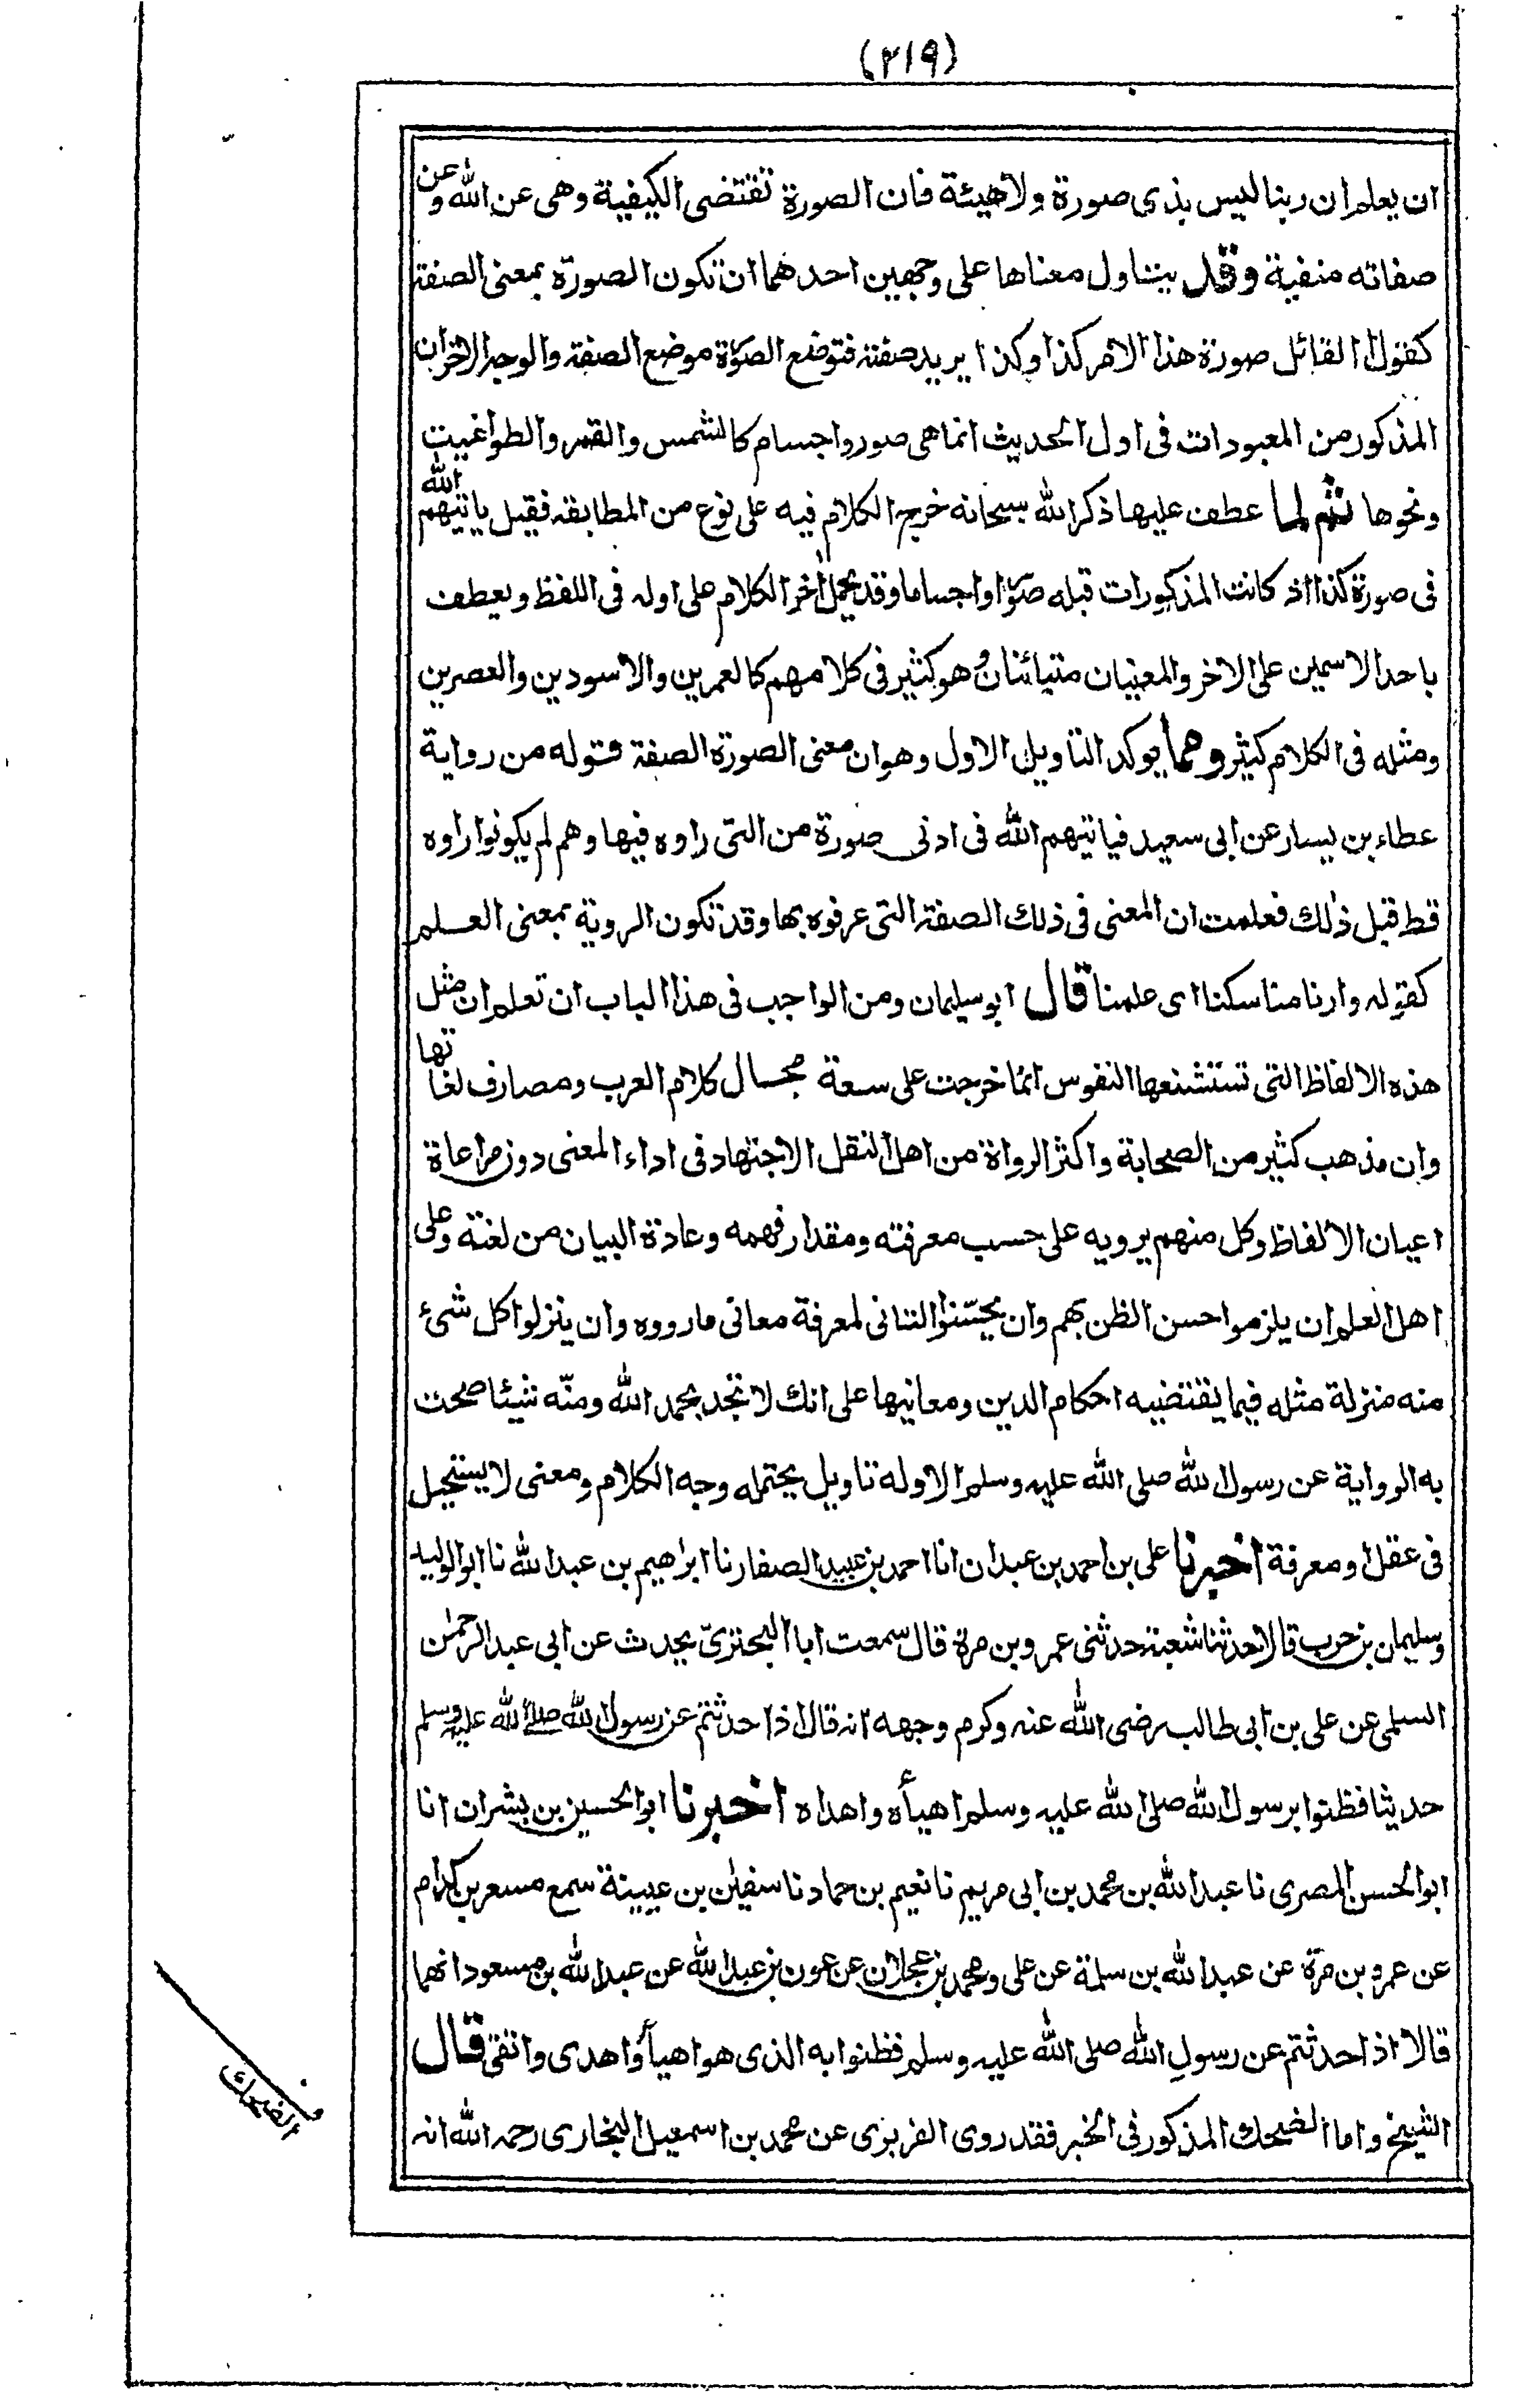 (٢١٩)
ان يعلم ان ربنا ليس بذى صورة ولا هيئة فان الصورة تقتضى الكيفية وهى عن الله وعن
صفاته منفية وقد يتناول معناها على وجهين احدهما ان تكون الصورة بمعنى الصفة
كقول القائل صورة هذا الامر كذا وكذا يريد صفته فتوضع الصورة موضع الصفة والوجه الاخر ان
المذكور من المعبودات فى اول الحديث انما هى صور واجسام كالشمس والقمر والطواغيت
ونحوها ثم لما عطف عليها ذكر الله سبحانه خرج الكلام فيه على نوع من المطابقة فقيل ياتيهم الله
فى صورة كذا اذ كانت المذكورات قبله صورا واجساما وقد يحمل اخر الكلام على اوله فى اللفظ ويعطف
باحد الاسمين على الاخر والمعنيان متبائنان وهو كثير فى كلامهم كالعمرين والاسودين والعصرين
ومثله فى الكلام كثير ومما يوكد التاويل الاول وهو ان معنى الصورة الصفة قوله من رواية
عطاء بن يسار عن ابى سعيد فياتيهم الله فى ادنى صورة من التى راوه فيها وهم لم يكونوا راوه
قط قبل ذلك فعلمت ان المعنى فى ذلك الصفة التى عرفوه بها وقد تكون الروية بمعنى العلم
كقوله وارنا مناسكنا اى علمنا قال ابو سليمان ومن الواجب فى هذا الباب ان تعلم ان مثل
هذه الالفاظ التى تستشنعها النفوس انما خرجت على سعة مجال كلام العرب ومصارف لغاتها
وان مذهب كثير من الصحابة واكثر الرواة من اهل النقل الاجتهاد فى اداء المعنى دون مراعاة
اعيان الالفاظ وكل منهم يرويه على حسب معرفته ومقدار فهمه وعادة البيان من لغته وعلى
اهل العلم ان يلزموا حسن الظن بهم وان يحسنوا التانى لمعرفة معانى ما رووه وان ينزلوا كل شئ
منه منزلة مثله فيما يقتضيه احكام الدين ومعانيها على انك لا تجد بحمد الله ومنّه شيئا صحت
به الرواية عن رسول الله صلى الله عليه وسلم الا وله تاويل يحتمله وجه الكلام ومعنى لا يستحيل
فى عقل او معرفة اخبرنا على بن احمد بن عبدان انا احمد بن عبيد الصفار نا ابراهيم بن عبد الله نا ابو الوليد
وسليمان بن حرب قالا حدثنا شعبة حدثنى عمرو بن مرة قال سمعت ابا البحترىّ يحدث عن ابى عبد الرحمٰن
السلمى عن على بن ابى طالب رضى الله عنه وكرم وجهه انه قال اذا حدثتم عن رسول الله صلى الله عليه وسلم
حديثا فظنوا برسول الله صلى الله عليه وسلم اهيأه واهداه اخبرنا ابو الحسين بن بشران انا
ابو الحسن المصرى نا عبد الله بن محمد بن ابى مريم نا نعيم بن حماد نا سفيٰن بن عيينة سمع مسعر بن كدام
عن عمرو بن مرة عن عبد الله بن سلمة عن على ومحمد بن عجلان عن عون بن عبد الله عن عبد الله بن مسعود انهما
قالا اذا حدثتم عن رسول الله صلى الله عليه وسلم فظنوا به الذى هو اهيأ واهدى واتقى قال
الشيخ واما الضحك المذكور فى الخبر فقد روى الفربرى عن محمد بن اسمعيل البخارى رحمه الله انه
الضحك